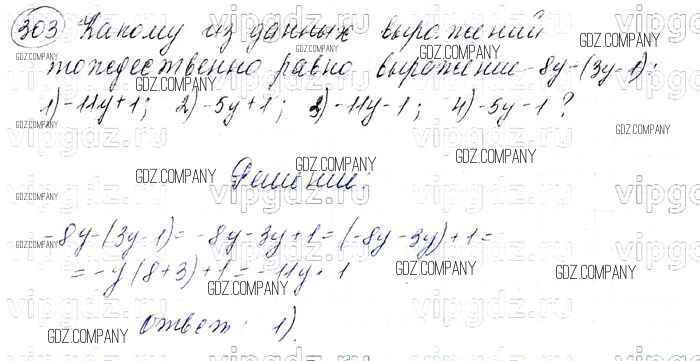 303 Какому из данных выражений
тождественно равно выражение -8y-(3y-1):
1) -11y+1; 2) -5y+1; 3) -11y-1; 4) -5y-1?
Решение:
-8y-(3y-1)= -8y-3y+1=(-8y-3y)+1=
= -y(8+3)+1= -11y+1
Ответ: 1).
GDZ.COMPANY
vipgdz.ru